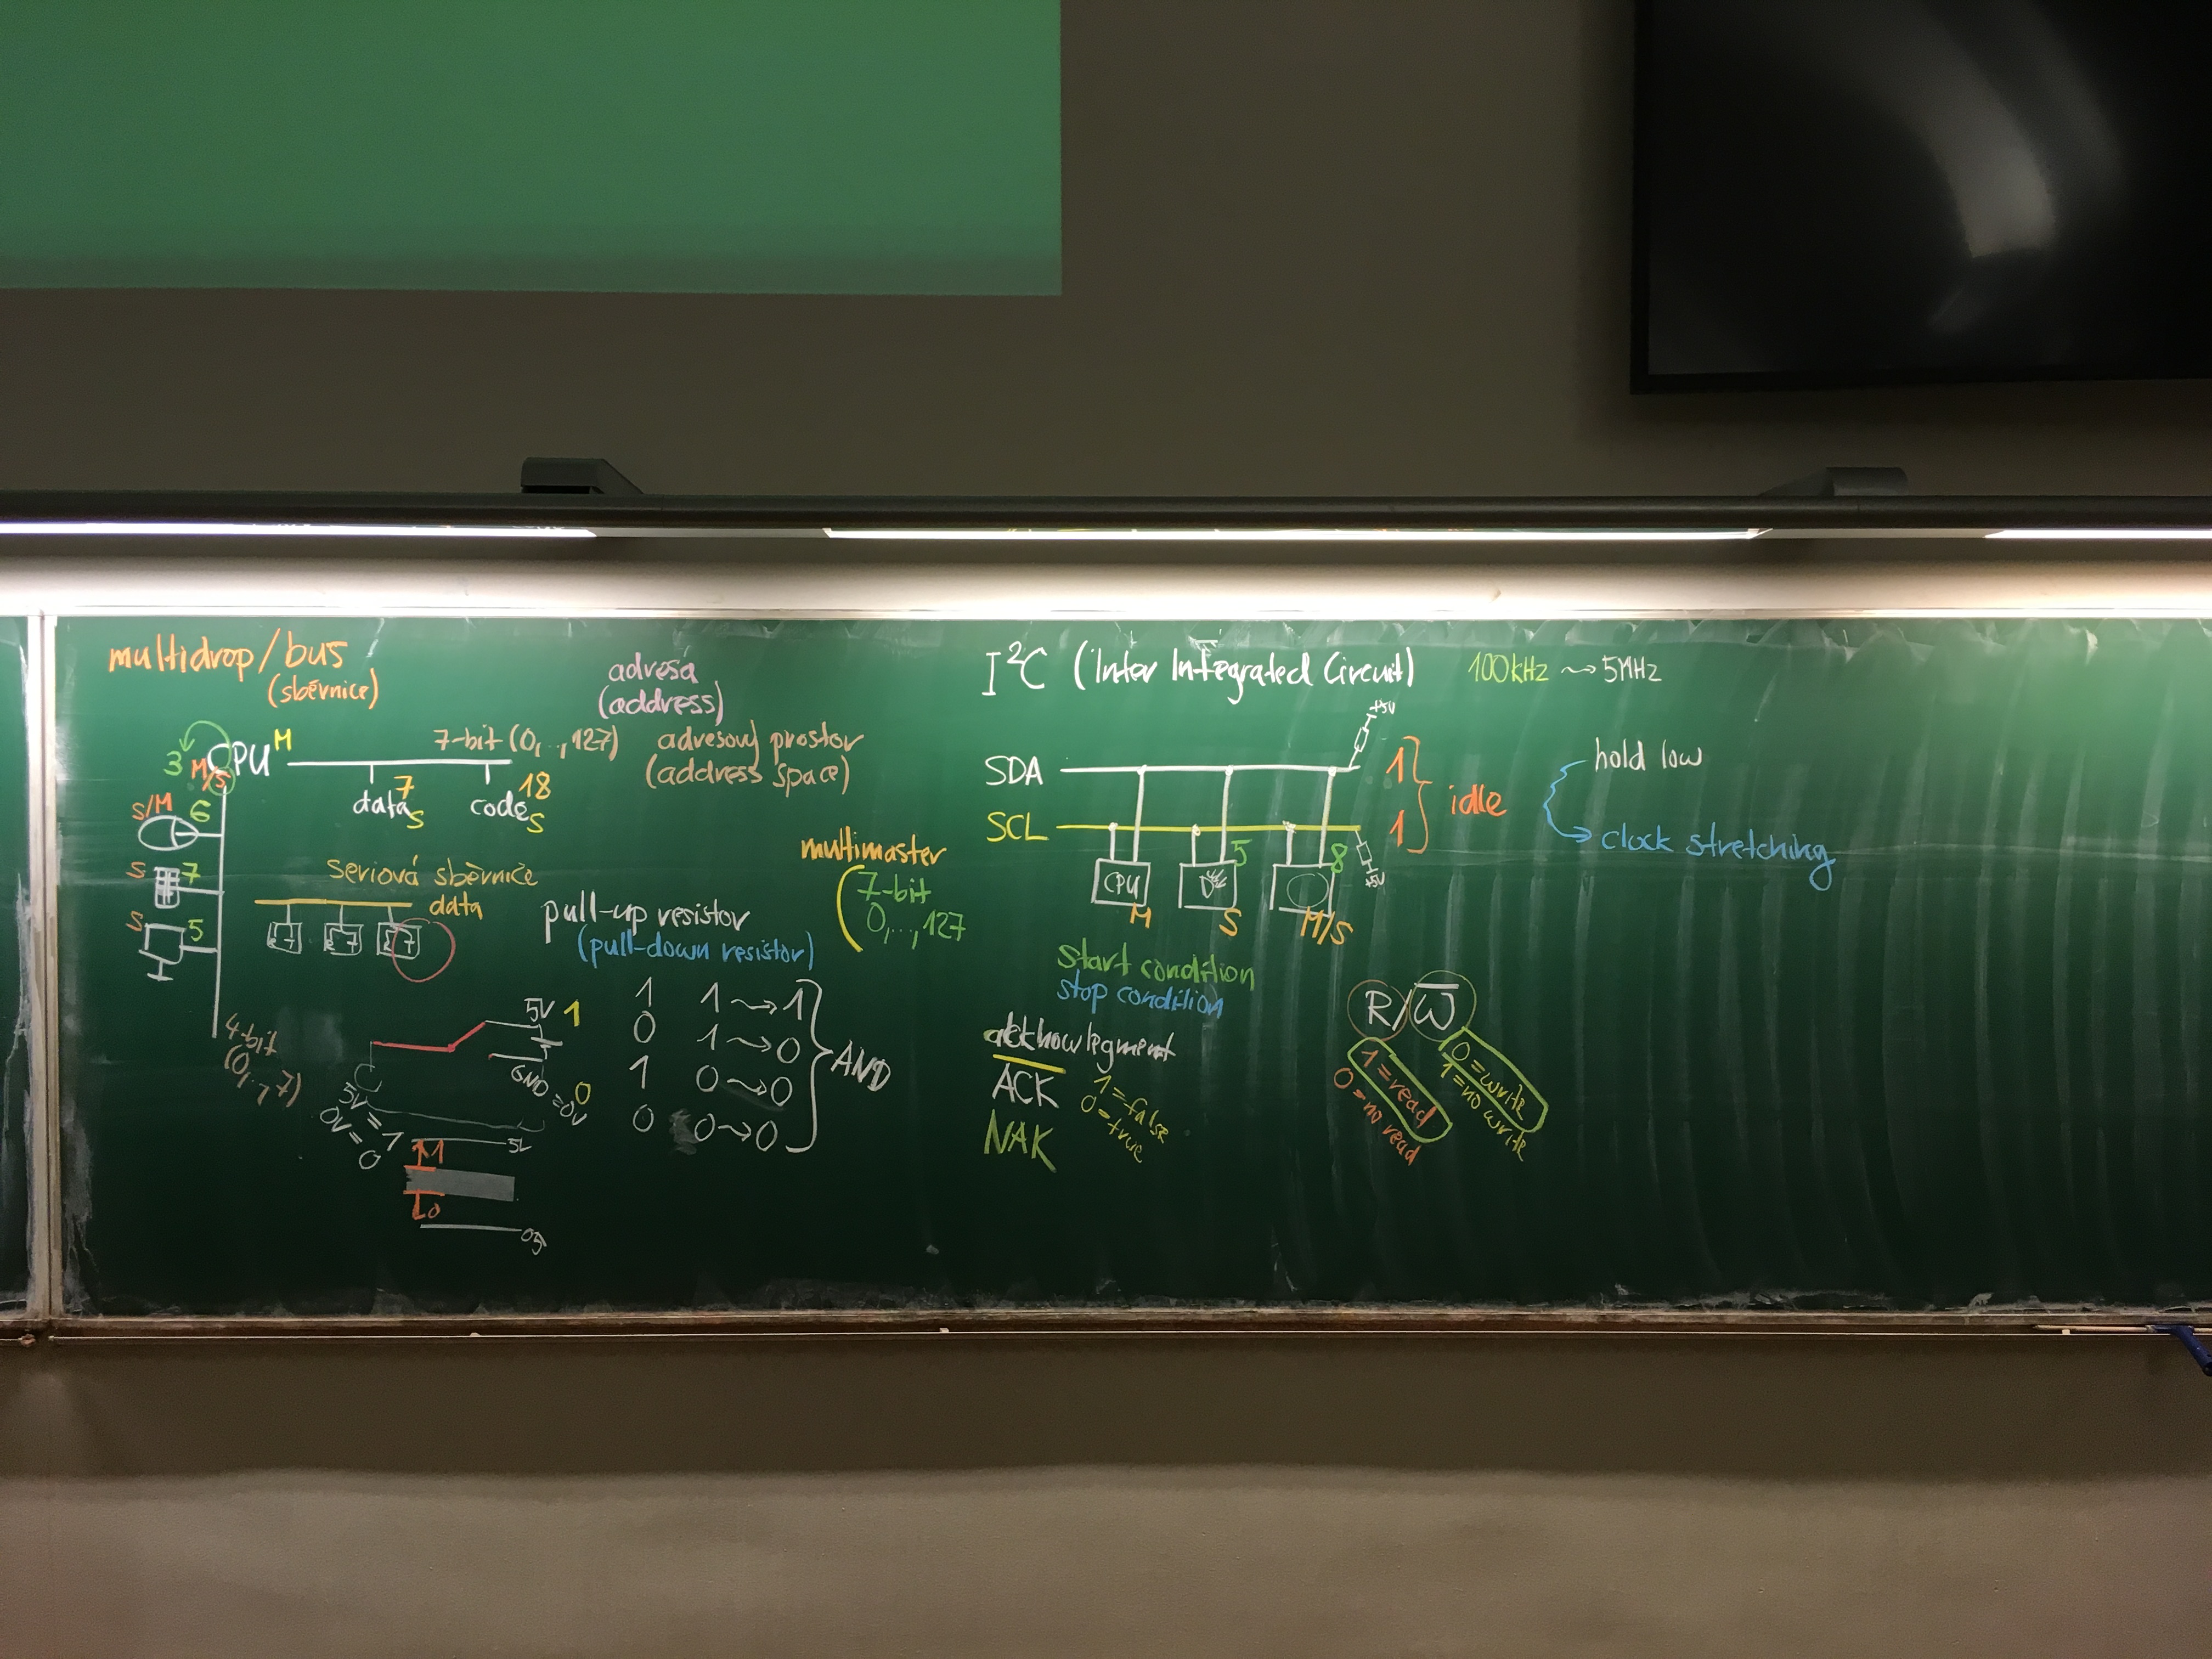 multidrop/bus
(sběrnice)
adresa
(address)
7-bit (0,..,127)
adresový prostor
(address space)
3
CPU M
M/S
7
data S
18
code S
S/M 6
S 7
S 5
4-bit
(0,..,7)
seriová sběrnice
data
pull-up resistor
(pull-down resistor)
multimaster
7-bit
0,...,127
5V 1
GND=0V 0
5V=1
0V=0
5V
1
0
0V
1 1→1
0 1→0
1 0→0
0 0→0
AND
I²C (Inter Integrated Circuit) 100kHz → 5MHz
+5V
SDA
SCL
1
1
idle
+5V
CPU
M
5
S
8
M/S
hold low
clock stretching
start condition
stop condition
acknowlegment
ACK
NAK
1=false
0=true
R/W̅
1=read
0=no read
0=write
1=no write